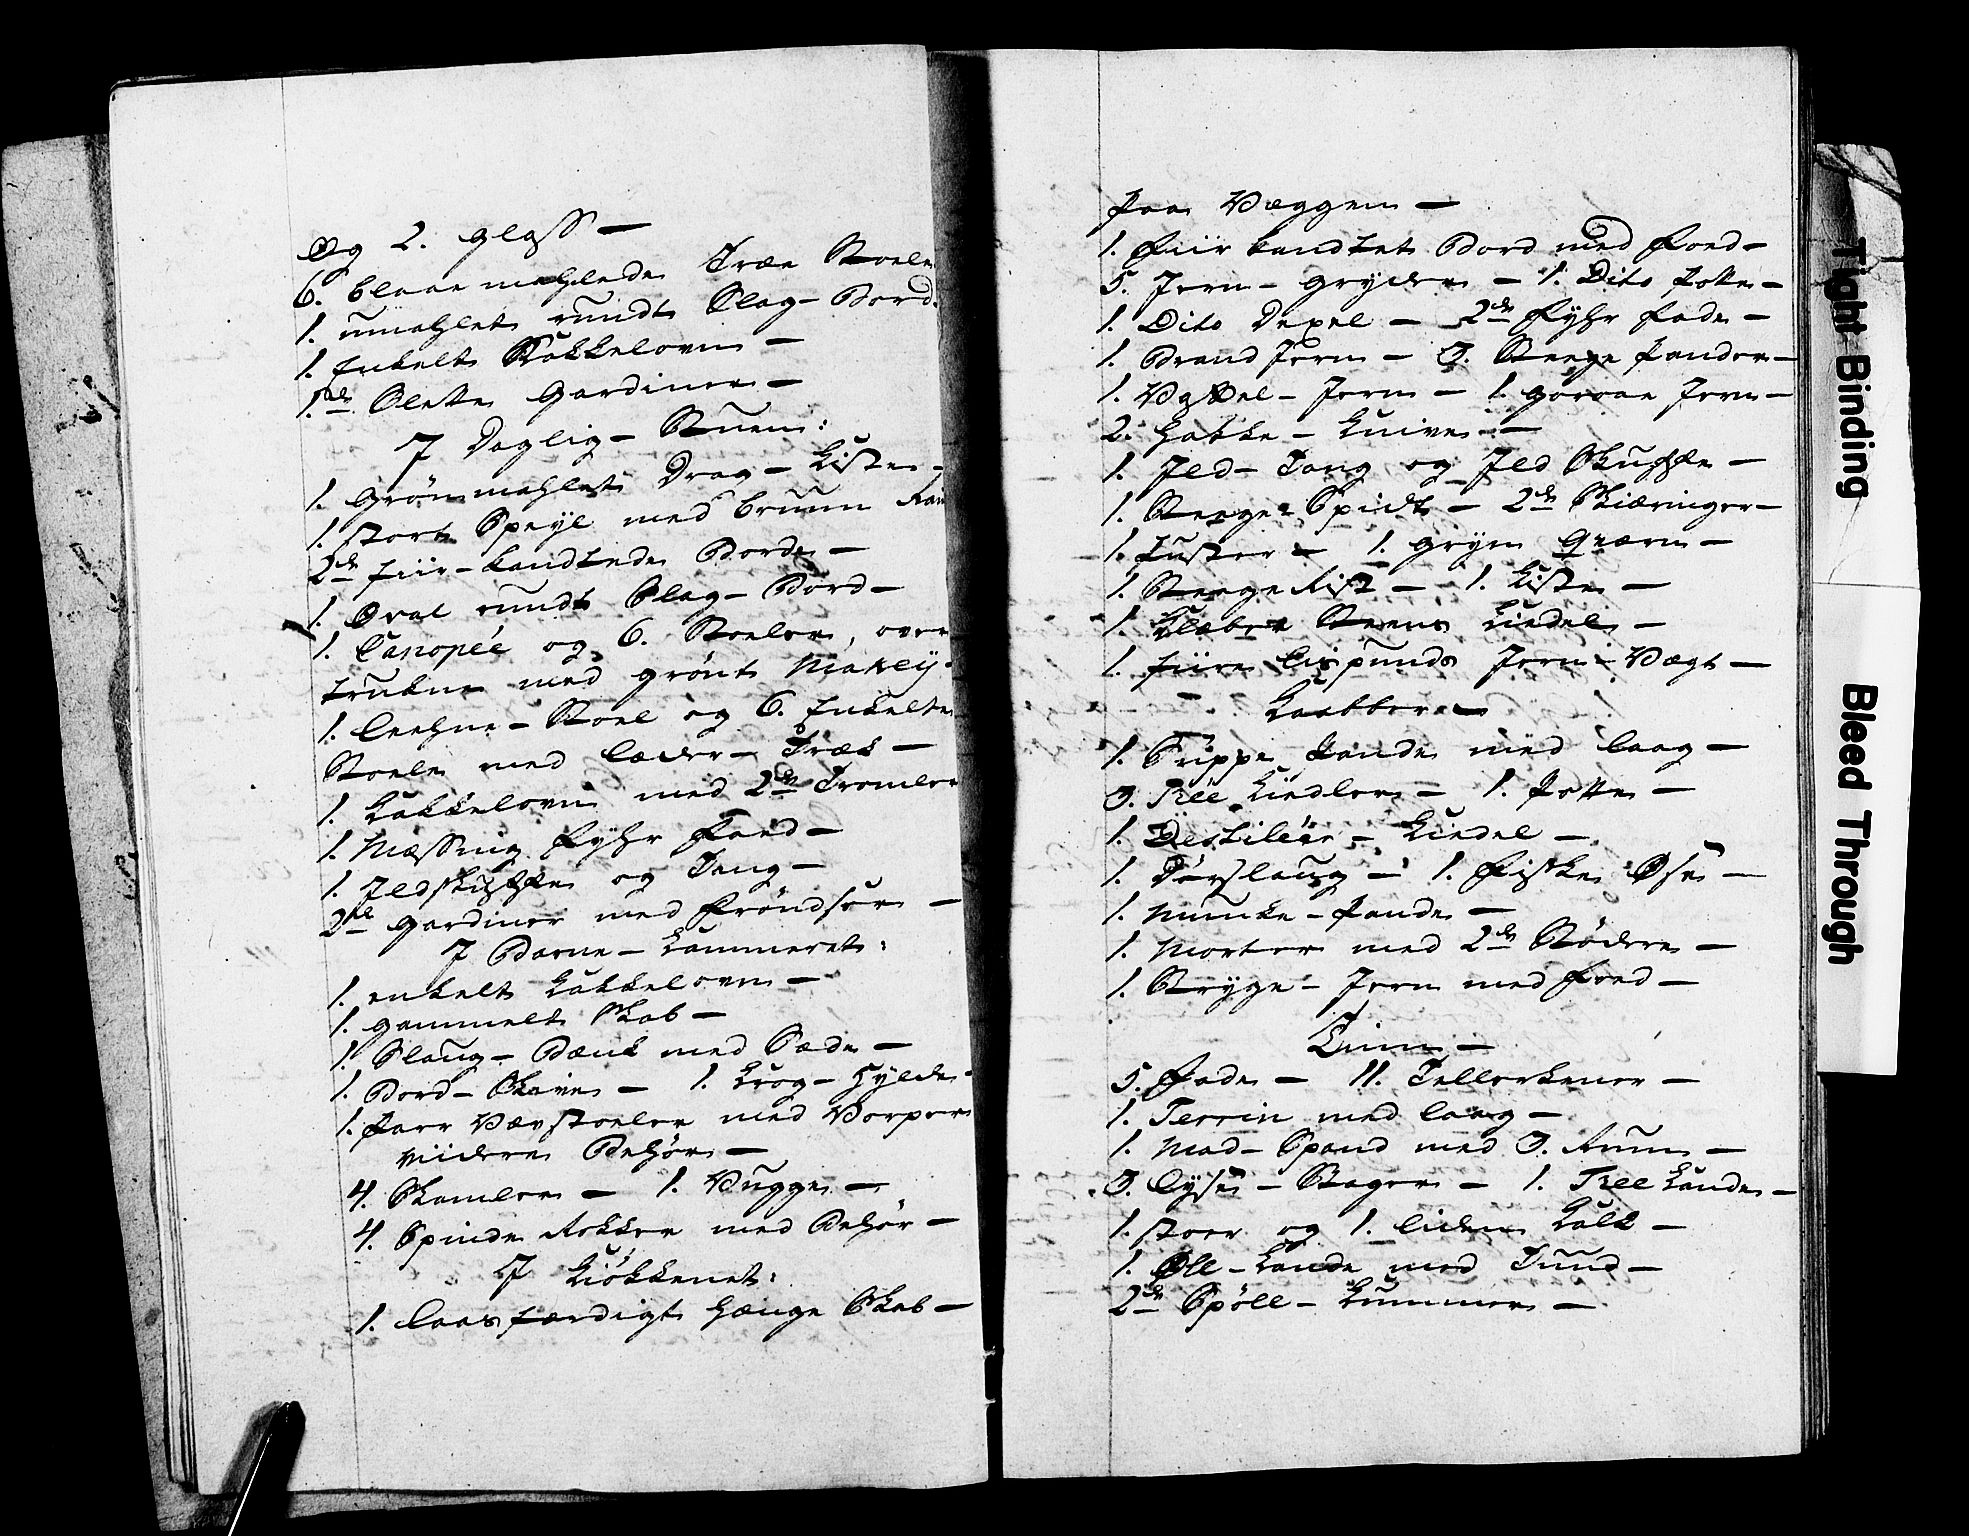 Og 2. Glass —
6. blaae mahlede Træe Stoele
1. umahlet rundt Slag- Bord.
1. Enkelt Kakkelovn —
1. Slette Gardiner —
J Daglig- Stuen:
1. Grønmahlet Drag- Kiste —
1. stort Speyl med bruun Ram
2de fiir- kandtede Borde —
1. Oval rundt Slag- Bord —
1. Canopéé og 6. Stoeler, over
trukne med grønt Makey-
1. Leehne- Stoel og 6. Enkelte
Stoele med Læder- Træk —
1. Kakkelovn med 2de Tromler
1. Messing Fyhr Fand —
1. Jldskuffe og Tang —
2de Gardiner med Frøndser —
J Barne- Kammeret:
1. enkelt Kakkelovn —
1. gammelt Skab —
1. Slaug- Bænk med Sæde —
1. Bord- Skive — 1. Krog- Hylde-
1. Paar Vævstoeler med Vorper
viidere Behør —
4. Skamler — 1. Vugge —
4. Spinde Rokker med Behør —
J Kiøkkenet:
1. Laasfærdigt hænge Skab —
paa Væggen —
1. Fiir kandtet Bord med Foed —
5. Jern- Gryder — 1. Dito Potte —
1. Dito Dexel — 2de Fyhr Fade —
1. Brand Jern — 3. Steege Pander —
1. Vaffel- Jern — 1. goroe Jern —
2. Hakke- Knive —
1. Jld- Tang og Jld Skuffe —
1. Steege Spidt — 2de Skiæringer —
1. Tuster — 1. Gryn Qværn —
1. Steege Rist — 1. Kiste —
1. Klæber Steens Kiedel —
1. fiire Lispunds Jern- Vægt —
Kaabber —
1. Suppe Pande med Laag —
3. Thee Kiedler — 1. Potte —
1. Destileer- Kiedel —
1. Dørslaug — 1. Fiske Øse —
1. Munke- Pande —
1. Morter med 2de Stødere —
1. Stryge- Jern med Foed —
Tinn —
5. Fade — 11. Tellerkener —
1. Terrin med Laag —
1. Mad- Spand med 3. Rum —
3. Lyse- Stager — 1. Thee Kande —
1. stoer og 1. liden Kalk —
1. Øll- Kande med Tuud —
2de Spøll- Kummer —
Tight Binding
Bleed Through